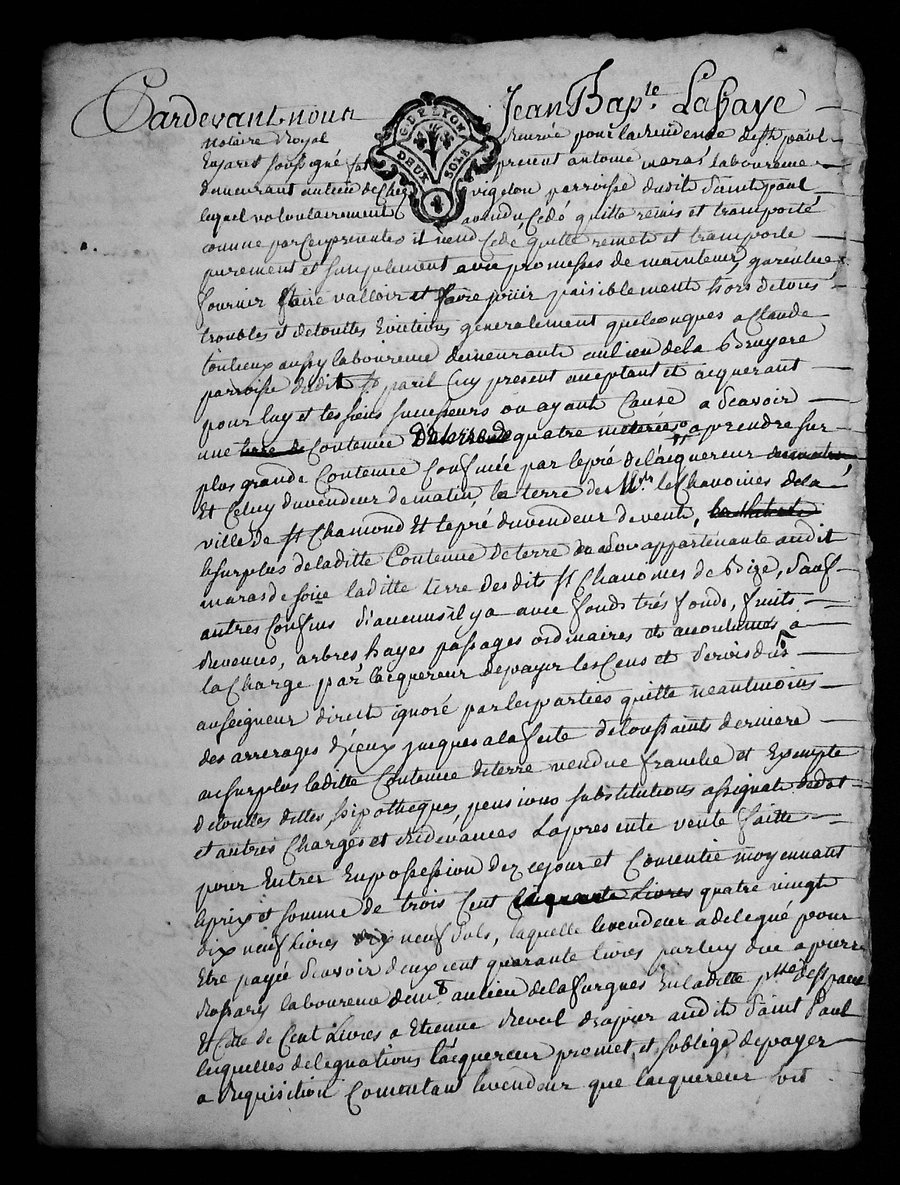 Pardevant nous Jean Bap.te Lafaye
GDE LYON
DEUX SOLS
notaire Royal Reservé pour la residence de St. paul
En jarest soussigné fut present antoine maras laboureur
demeurant au lieu de Chez vigelon parroisse dudit Saint paul
lequel volontairement a vendu, Cedé quitté remis et transporté
comme par Ces presentes il vend Cede quitte remet et transporte
purement et simplement avec promesses de maintenir, garentir
fournir faire valloir et faire jouir paisiblement hors de tous
troubles et de touttes Evictions generalement quelconques a Claude
toulieux aussy laboureur demeurant au lieu de la Bruyere
parroisse dudit St. paul Cy present acceptant et acquerant
pour luy et les siens successeurs ou ayant Cause a Scavoir
une terre de Contenue De terre de quatre meterées a prendre sur
plus grande Contenue Confinée par le pré de lacquereur
Et Celuy du vendeur de matin, la terre des Mrs les Chanoines de la
ville de St Chamond Et le pré du vendeur de vent,
le surplus de laditte Contenue de terre appartenante audit
maras de soir laditte terre desdits Srs Chanoines de Bize, Sauf
autres Confins si aucuns il y a avec fonds tres fonds, fruits,
Revenues, arbres hayes passages ordinaires et accoutumés a
la Charge par lacquereur de payer les Cens et Servis dus
au seigneur direct ignoré par les parties quitte neantmoins
des arrerages d'iceux jusques a la feste de toussaints derniere
au surplus laditte Contenue de terre vendue franche et Exempte
de touttes dettes hipotheques, pensions substitutions assignats de dot
et autres Charges et Redevances La presente vente faitte
pour Entrer En possession dez ce jour et Consentie moyennant
le prix et somme de trois Cent Cinquante Livres quatre vingt
dix neuf livres dix neuf Sols, laquelle le vendeur a delegué pour
Etre payée Scavoir deux cent quarante livres par luy due a pierre
laboureur demt. au lieu de la fargues En laditte psse de St paul
Et Celle de Cent Livres a Etienne Reveil audit Saint Paul
lesquelles delegations lacquereur promet, et s'oblige de payer
a Requisition Consentant le vendeur que lacquereur soit